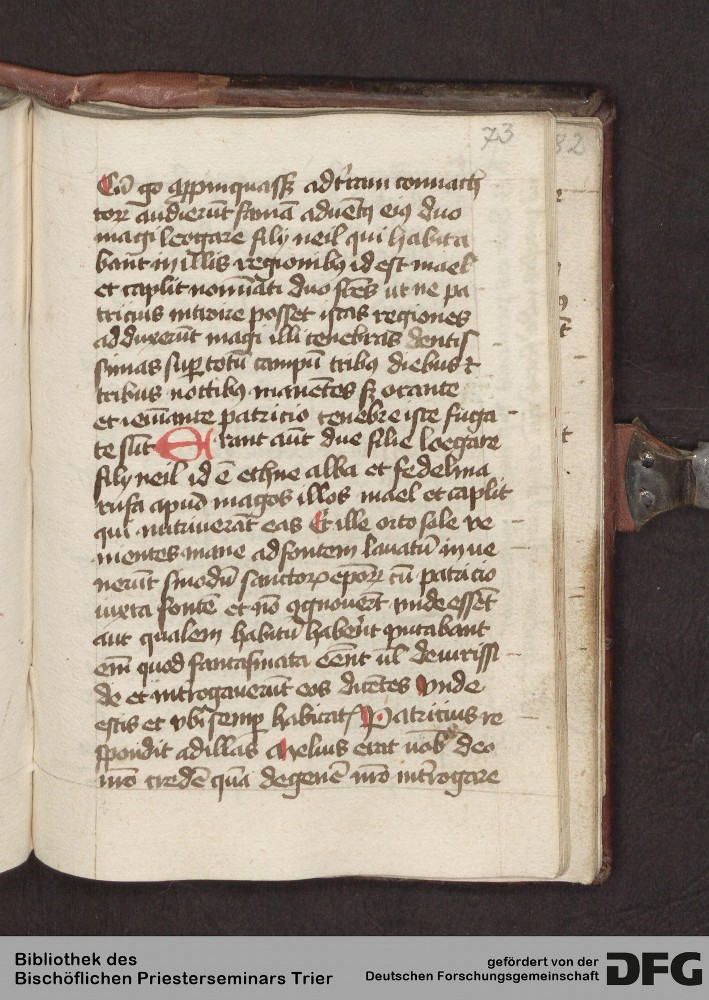 73
82
Cū go appīnquass3 ad t'ram connach
tor audierūt famā aduētꝯ eiꝯ duo
magi leogare filij neil qui habita
bant in illis regionibꝯ id est mael
et caplit nomīati duo frēs ut ne pa
tricius introire posset istas regiones
adduxerūt magi illi tenebras dentis
simas sup totū campū tribꝯ diebus et
tribus nottibꝯ manētes s3 orante
et ieiūante patricio tenebre iste fuga
te sūt Erant aūt due filie loegare
filij neil id ē ethne alba et fedelma
rufa apud magos illos mael et caplit
qui nutriuerāt eas Et ille orto sole ve
nientes mane ad fontem lauatū inue
nerūt sinodū sanctorꝝ epōrꝝ cū patricio
iuxta fontē et nō ꝯgnouerūt unde essēt
aut qualem habitū haberūt putabant
enī quod fantasmata eēnt ul de uirissi
de et introgauerūt eos dicētes Vnde
estis et vbi semp habitat Patricius re
spondit ad illas Melius erat uob deo
nrō credē quā de genē nrō int'rogare
Bibliothek des
Bischöflichen Priesterseminars Trier
gefördert von der
Deutschen Forschungsgemeinschaft
DFG